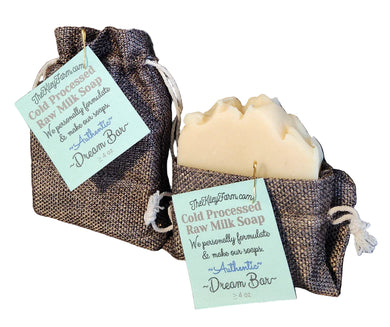 TheKlineFarm.com
Cold Processed
Raw Milk Soap
We personally formulate
& make our soaps.
~Authentic~
~Dream Bar~
≥ 4 oz
TheKlineFarm.com
Cold Processed
Raw Milk Soap
We personally formulate
& make our soaps.
~Authentic~
~Dream Bar~
≥ 4 oz